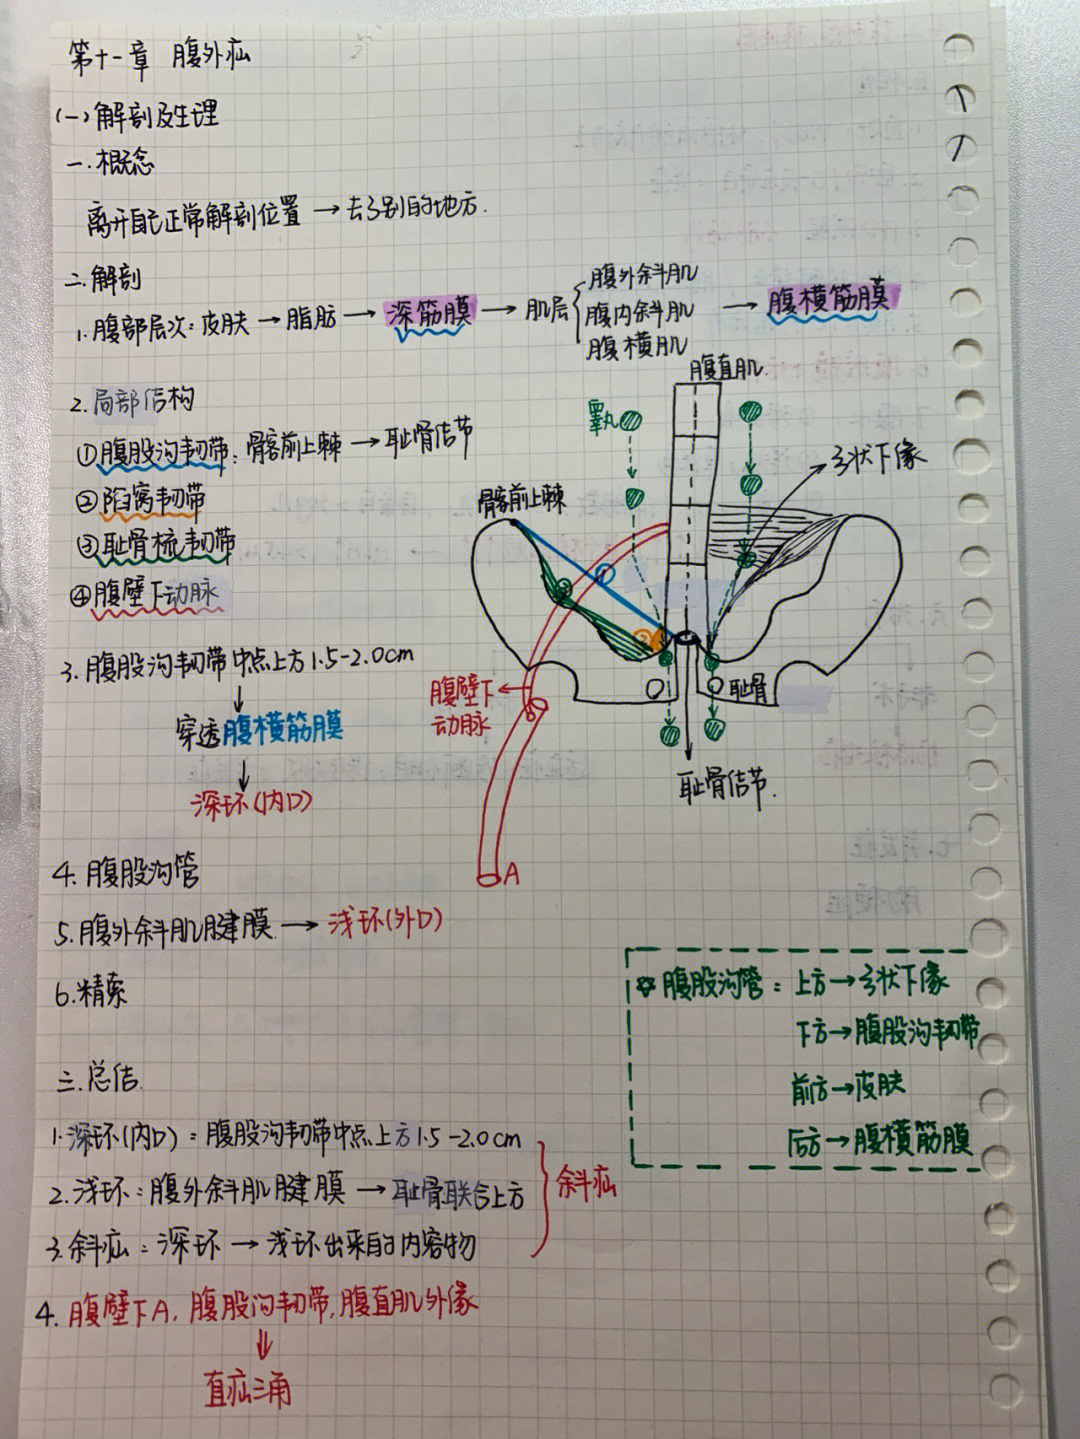 第十一章 腹外疝
(一)解剖及生理
一.概念
离开自己正常解剖位置→去了别的地方.
二.解剖
1.腹部层次:皮肤→脂肪→深筋膜→肌层 腹外斜肌 腹内斜肌 腹横肌→腹横筋膜
2.局部结构
①腹股沟韧带:髂前上棘→耻骨结节
②陷窝韧带
③耻骨梳韧带
④腹壁下动脉
腹直肌
睾丸
弓状下缘
髂前上棘
① ② ③
腹壁下
动脉
A
耻骨
耻骨结节.
3.腹股沟韧带中点上方1.5-2.0cm
↓
穿透腹横筋膜
↓
深环(内口)
4.腹股沟管
5.腹外斜肌腱膜→浅环(外口)
6.精索
腹股沟管:上方→弓状下缘
下方→腹股沟韧带
前方→皮肤
后方→腹横筋膜
三.总结.
1.深环(内口):腹股沟韧带中点上方1.5-2.0cm
2.浅环:腹外斜肌腱膜→耻骨联合上方
3.斜疝:深环→浅环出来的内容物
斜疝
4.腹壁下A,腹股沟韧带,腹直肌外缘
⇓
直疝三角